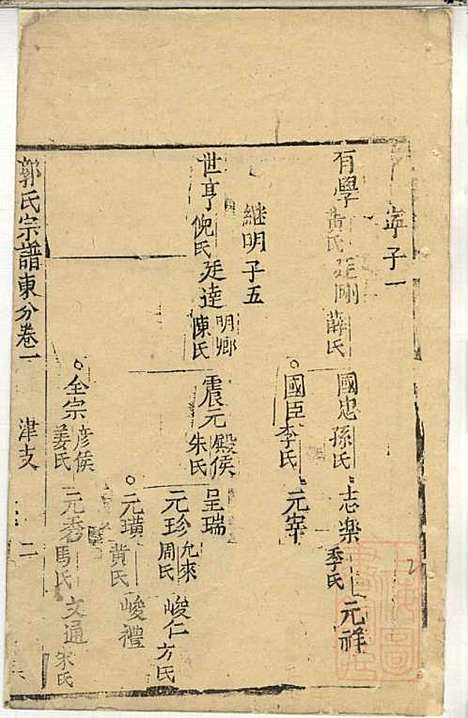 子一
有學 黃氏 廷剛 薛氏 國忠 孫氏 志樂 季氏 元祥
國臣 李氏 元宰
繼明子五
世亨 倪氏 廷達 明卿 陳氏 震元 殿侯 朱氏 呈瑞
元珍 允來 周氏 峻仁 方氏
元璜 黃氏 峻禮
全宗 彥侯 姜氏 元秀 馬氏 文通 宋氏
郭氏宗譜東分卷一 津支 二